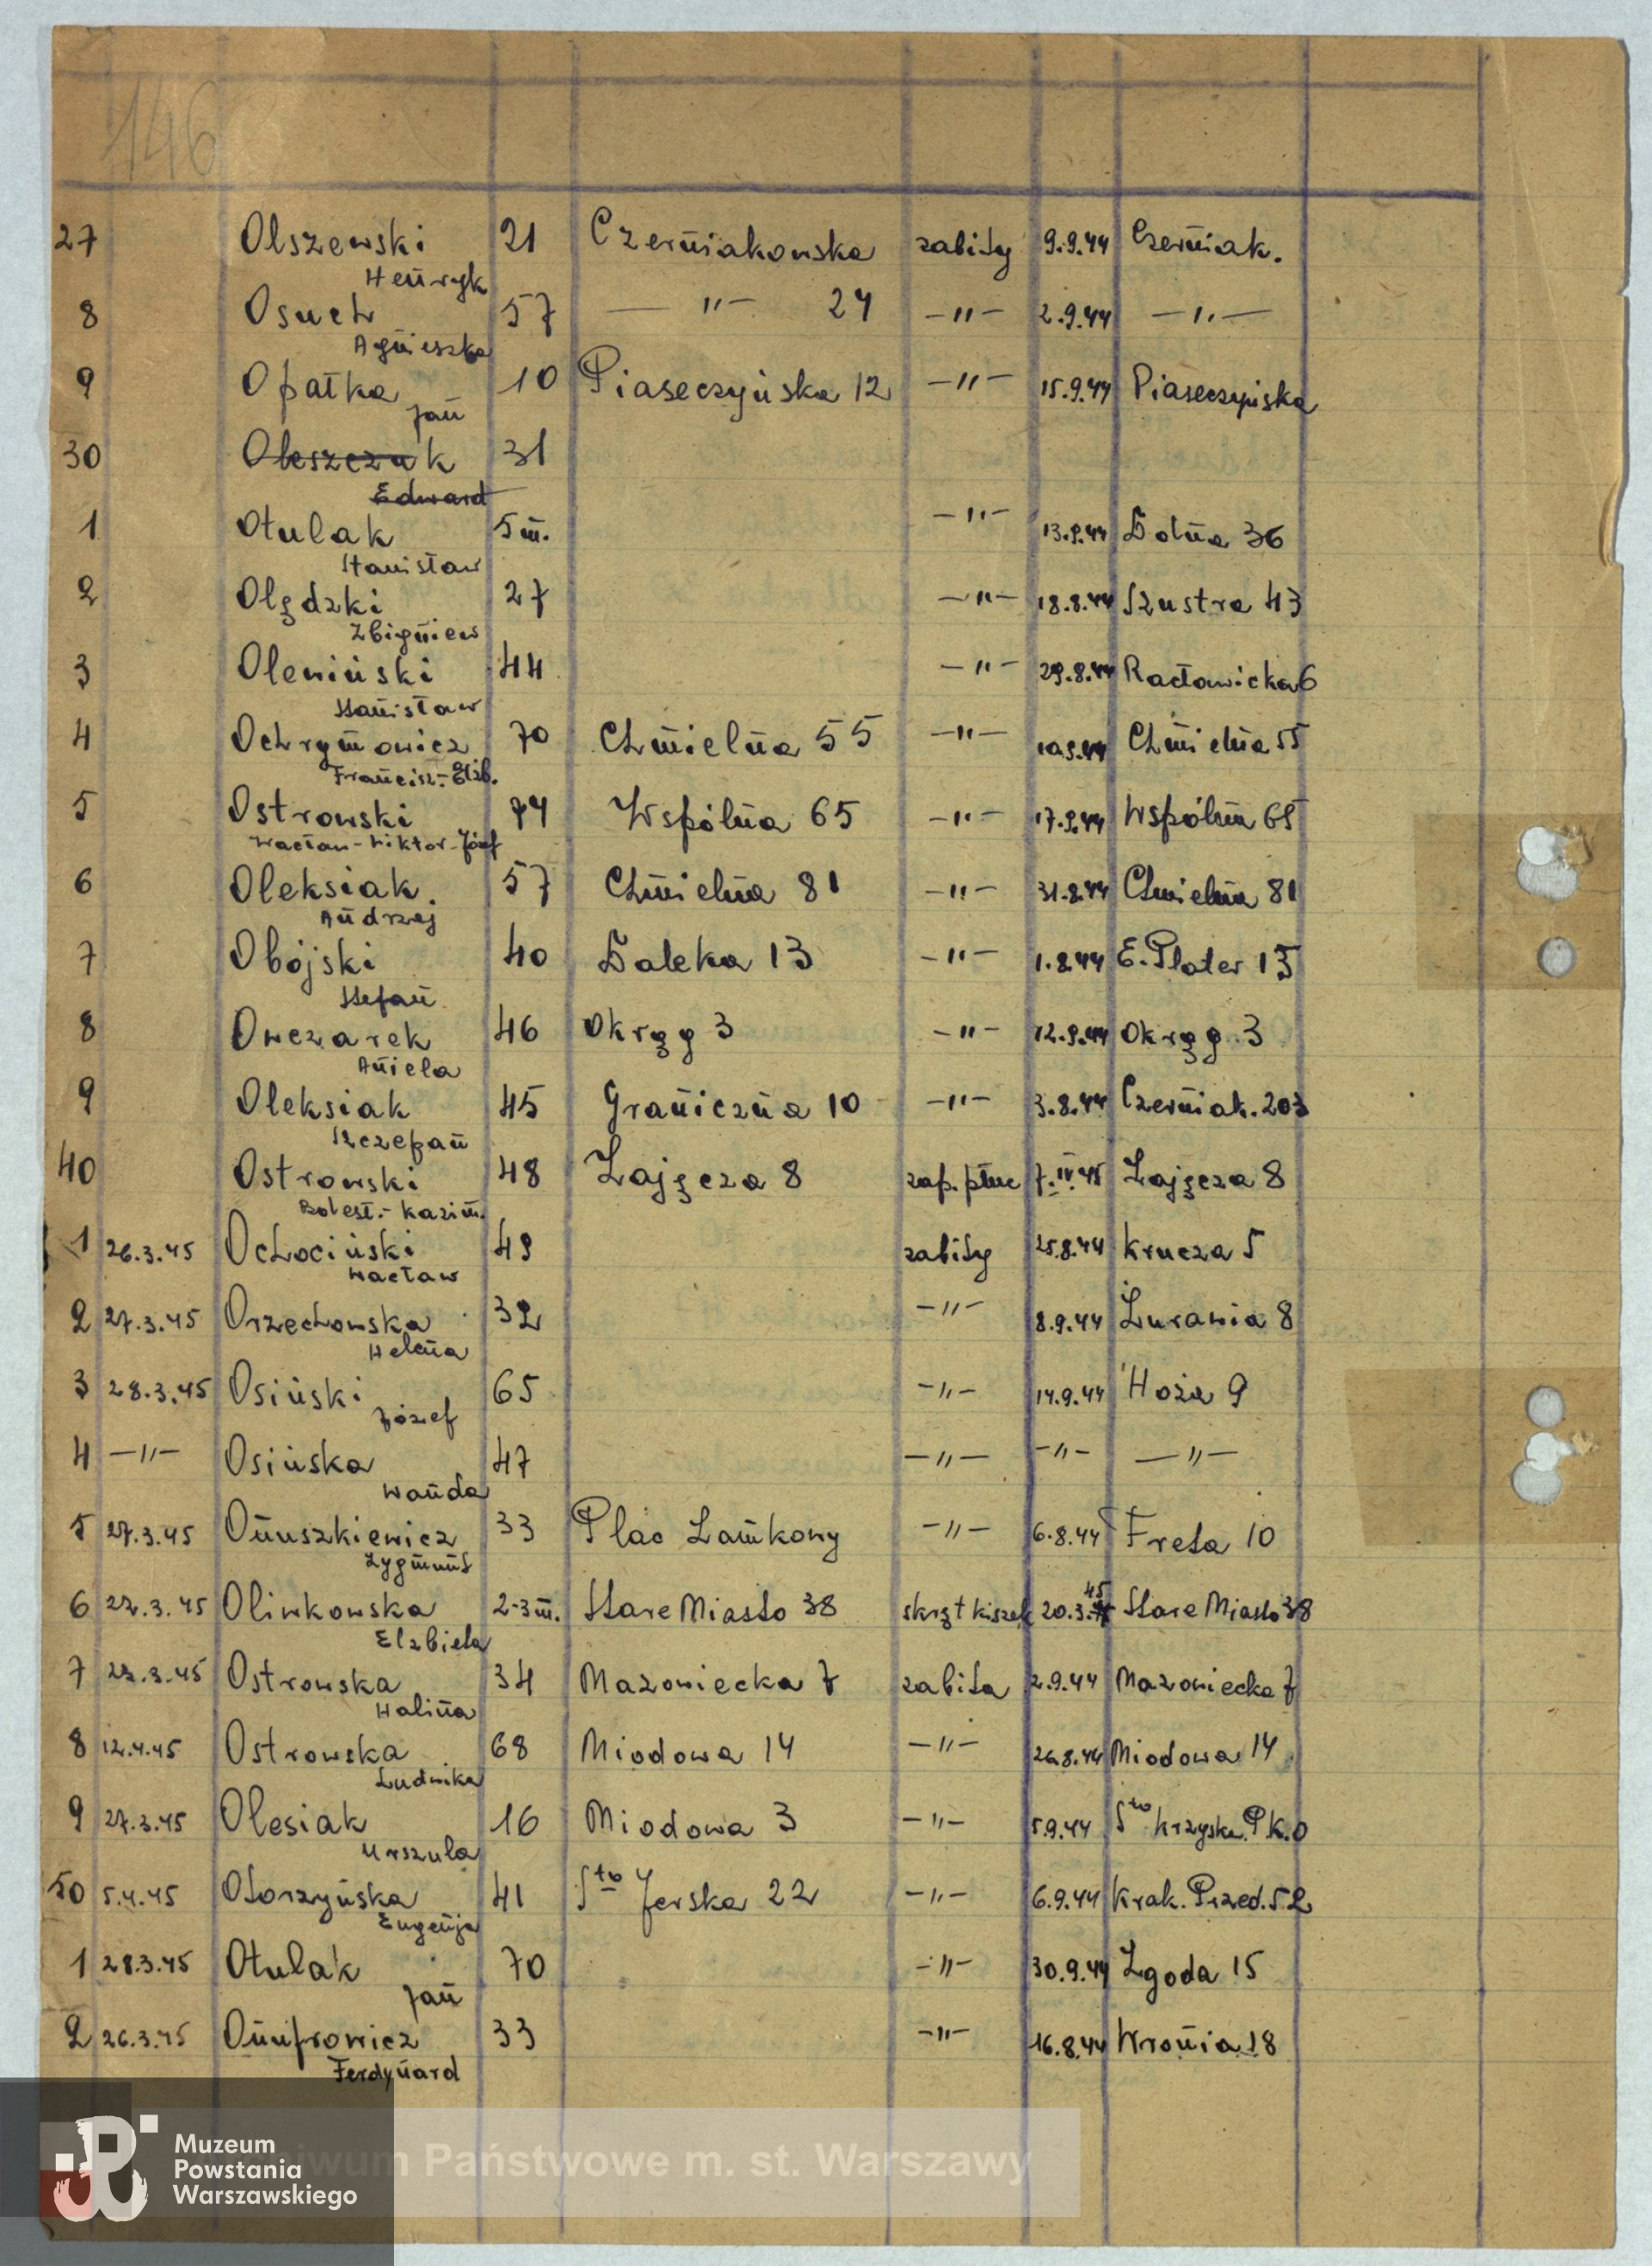 146
27 Olszewski 21 Czerniakowska zabity 9.9.44 Czerniak.
Henryk
8 Osuch 57 — " — 24 — " — 2.9.44 — " —
Agnieszka
9 Opałka 10 Piaseczyńska 12 — " — 15.9.44 Piaseczyńska
Jan
30 Oleszczuk 31
Edward
1 Otulak 5 m. — " — 13.9.44 Dolna 36
Stanisław
2 Olędzki 27 — " — 18.8.44 Szustra 43
Zbigniew
3 Oleniński 44 — " — 29.8.44 Racławicka 6
Stanisław
4 Ochrymowicz 70 Chmielna 55 — " — Chmielna 55
Francisz.-Elżb.
5 Ostrowski Wspólna 65 — " — 17.9.44 Wspólna 65
Wacław-Wiktor-Józef
6 Oleksiak 57 Chmielna 81 — " — 31.8.44 Chmielna 81
Andrzej
7 Obójski 40 Daleka 13 — " — 1.8.44 E. Plater 15
Stefan
8 Owczarek 46 Okrąg 3 — " — 12.9.44 Okrąg 3
Aniela
9 Oleksiak 45 Graniczna 10 — " — 3.8.44 Czerniak. 203
Szczepan
40 Ostrowski 48 Zajęcza 8 zap. płuc 7.IV.45 Zajęcza 8
Bolesł.-Kazim.
1 26.3.45 Ochociński 49 zabity 25.8.44 Krucza 5
Wacław
2 27.3.45 Orzechowska 32 — " — 8.9.44 Żurawia 8
Helena
3 28.3.45 Osiński 65 — " — 14.9.44 Hoża 9
Józef
4 — " — Osińska 47 — " — — " — — " —
Wanda
5 27.3.45 Onuszkiewicz 33 Plac Zamkowy — " — 6.8.44 Freta 10
Zygmunt
6 Oliwkowska 2-3 m. Stare Miasto 38 skręt kiszek 20.3.45 Stare Miasto 38
Elżbieta
7 Ostrowska 34 Mazowiecka 7 zabita 2.9.44 Mazowiecka 7
Halina
8 12.4.45 Ostrowska 68 Miodowa 14 — " — 26.8.44 Miodowa 14
Ludwika
9 27.3.45 Olesiak 16 Miodowa 3 — " — 5.9.44 Sto Krzyska P.K.O
Urszula
50 5.4.45 Otorzyńska 41 Sto Jerska 22 — " — 6.9.44 Krak. Przed. 52
Eugenja
1 28.3.45 Otulak 70 — " — 30.9.44 Zgoda 15
Jan
2 26.3.45 Onufrowicz 33 — " — 16.8.44 Wronia 18
Ferdynard
Muzeum
Powstania
Warszawskiego
iwum Państwowe m. st. Warszawy